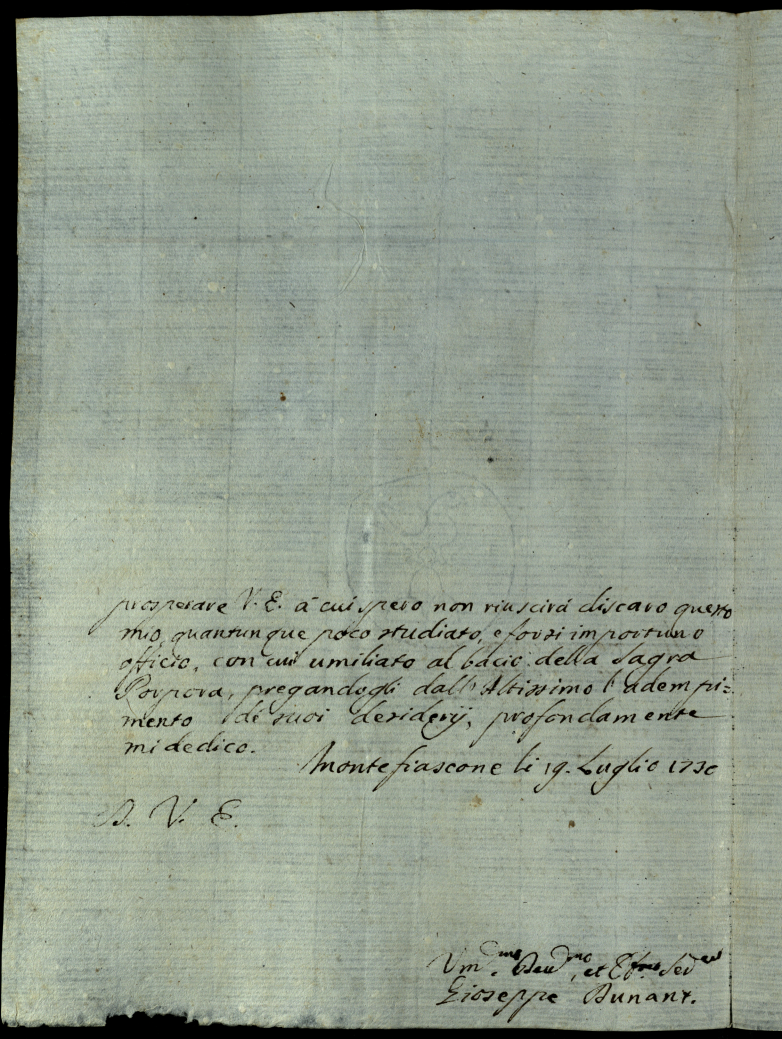 prosperare V. E. à cui spero non riuscirá discaro questo
mio, quantunque poco studiato, e forsi importuno
officio, con cui umiliato al bacio della Sagra
Porpora, pregandogli dall' Altissimo l' adempi=
mento di suoi desiderij, profondamente
mi dedico.
Montefiascone li 19. Luglio 1730
D. V. E.
Vm.mo Dev.mo, et Obb.mo Ser.
Gioseppe Dunant.